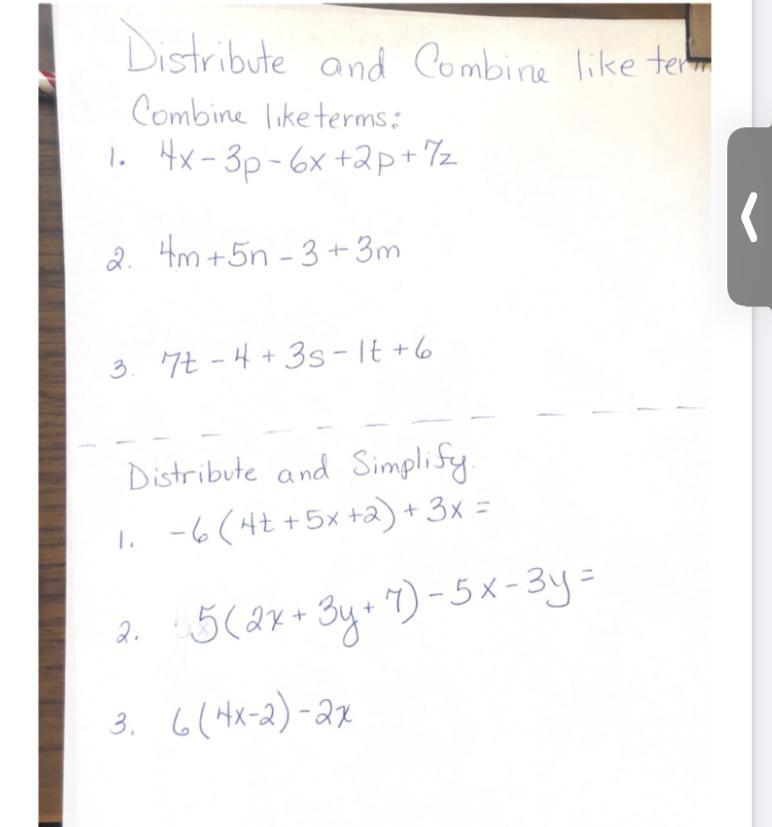 Distribute and Combine like term
Combine like terms:
1. 4x - 3p - 6x + 2p + 7z
2. 4m + 5n - 3 + 3m
3. 7t - 4 + 3s - 1t + 6
Distribute and Simplify.
1. -6(4t + 5x + 2) + 3x =
2. 5(2x + 3y + 7) - 5x - 3y =
3. 6(4x - 2) - 2x